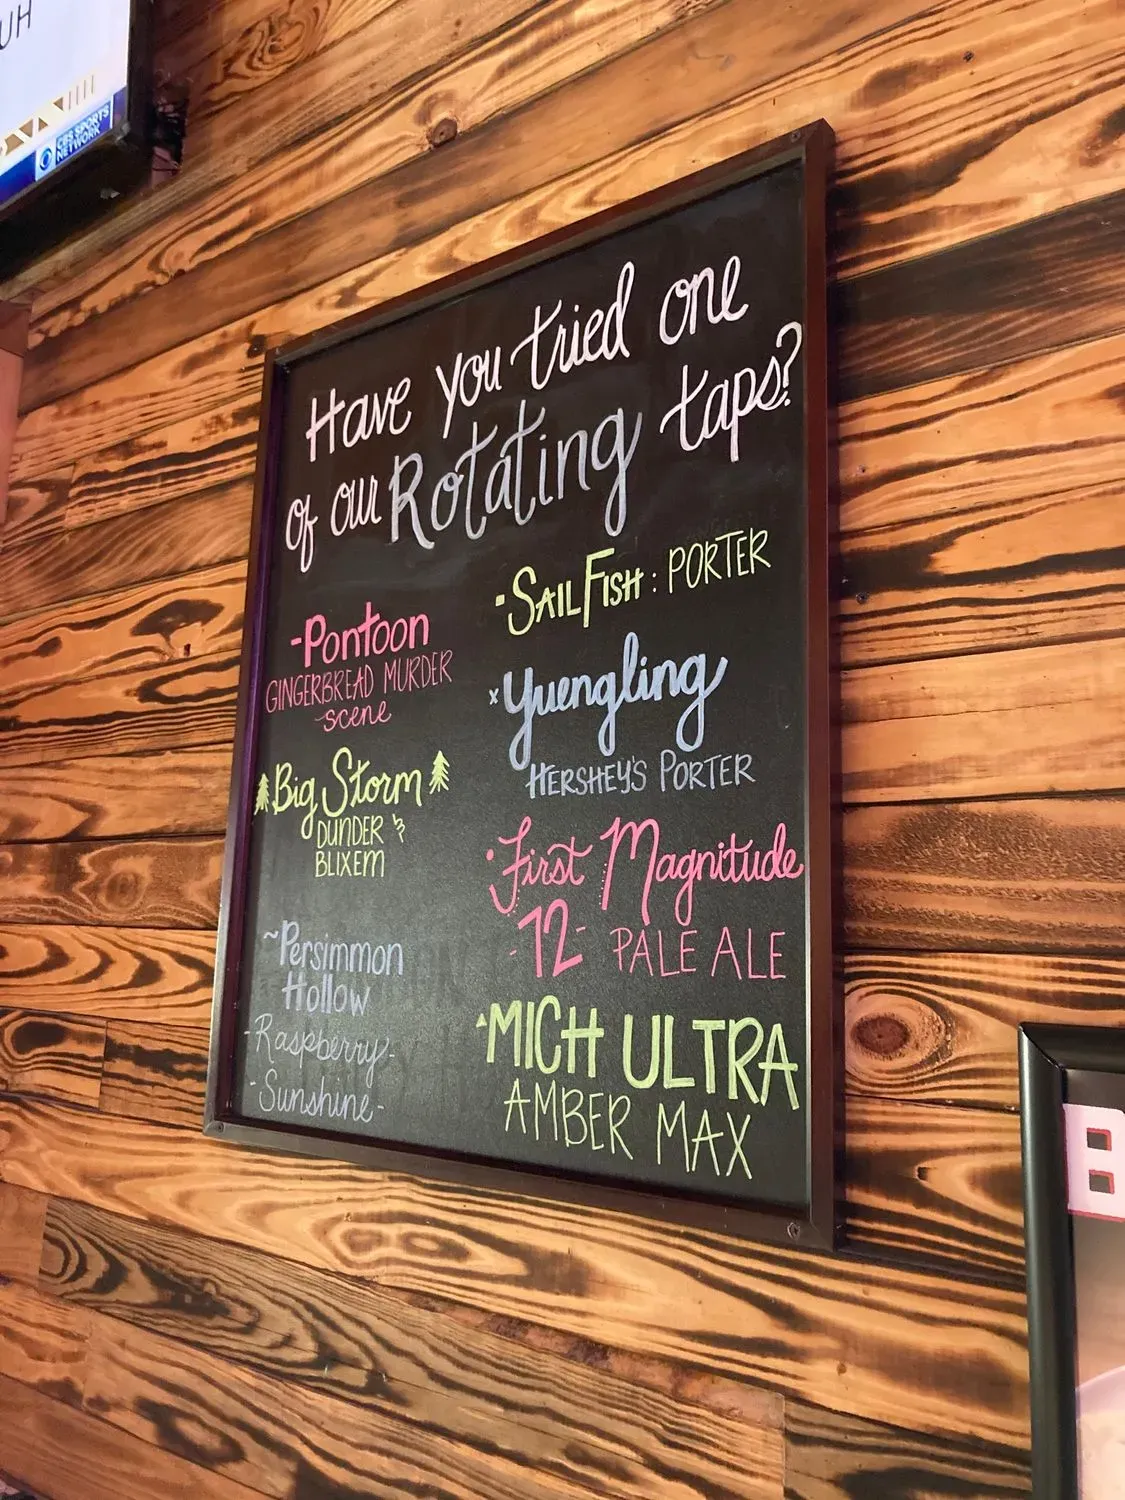 UH
CBS SPORTS
NETWORK
Have you tried one
of our Rotating taps?
-Pontoon
GINGERBREAD MURDER
scene
Big Storm
DUNDER
BLIXEM
~Persimmon
Hollow
-Raspberry-
-Sunshine-
·SAILFISH: PORTER
xYuengling
HERSHEY'S PORTER
·First Magnitude
-72- PALE ALE
MICH ULTRA
AMBER MAX
B